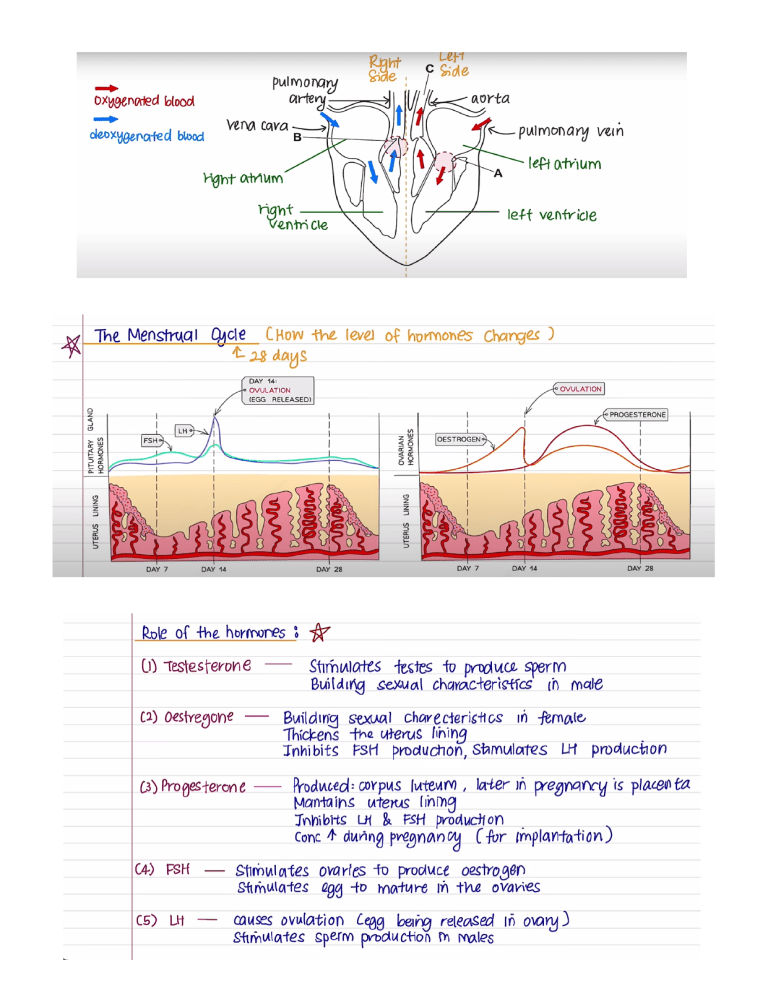 Right
Side
Left
Side
C
pulmonary
artery
aorta
oxygenated blood
deoxygenated blood
vena cava
B
pulmonary vein
left atrium
A
right atrium
right
ventricle
left ventricle
The Menstrual Cycle (How the level of hormones Changes)
↑ 28 days
DAY 14:
OVULATION
(EGG RELEASED)
LH
FSH
PITUITARY GLAND
HORMONES
UTERUS LINING
DAY 7
DAY 14
DAY 28
OVULATION
PROGESTERONE
OESTROGEN
OVARIAN
HORMONES
UTERUS LINING
DAY 7
DAY 14
DAY 28
Role of the hormones :
(1) Testesterone — Stimulates testes to produce sperm
Building sexual characteristics in male
(2) Oestregone — Building sexual charecteristics in female
Thickens the uterus lining
Inhibits FSH production, Stimulates LH production
(3) Progesterone — Produced: corpus luteum, later in pregnancy is placenta
Mantains uterus lining
Inhibits LH & FSH production
Conc ↑ during pregnancy (for implantation)
(4) FSH — Stimulates ovaries to produce oestrogen
Stimulates egg to mature in the ovaries
(5) LH — causes ovulation (egg being released in ovary)
Stimulates sperm production in males